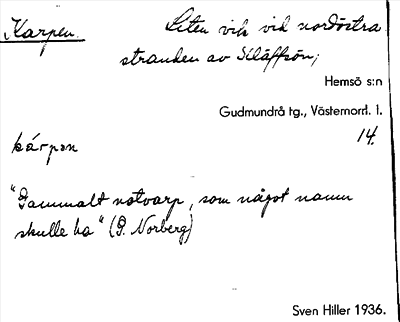 Karpen. Liten vik vid nordöstra
stranden av Kläffsön;
Hemsö s:n
Gudmundrå tg., Västernorrl. l.
14.
kárpən
"Gammalt notvarp, som något namn
skulle ha" (P. Norberg)
Sven Hiller 1936.